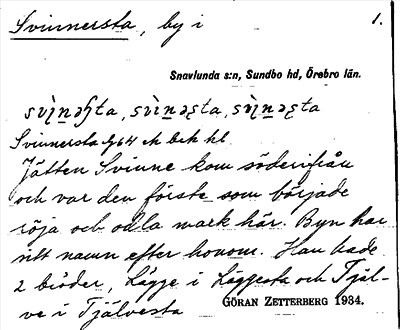 Svinnersta, by i 1.
Snavlunda s:n, Sundbo hd, Örebro län.
Svinnersta
Jätten Svinne kom söderifrån
och var den förste som började
röja och odla mark här. Byn har
sitt namn efter honom. Han hade
2 bröder, Lägge i Läggesta och Tjäl-
ve i Tjälvesta GÖRAN ZETTERBERG 1934.